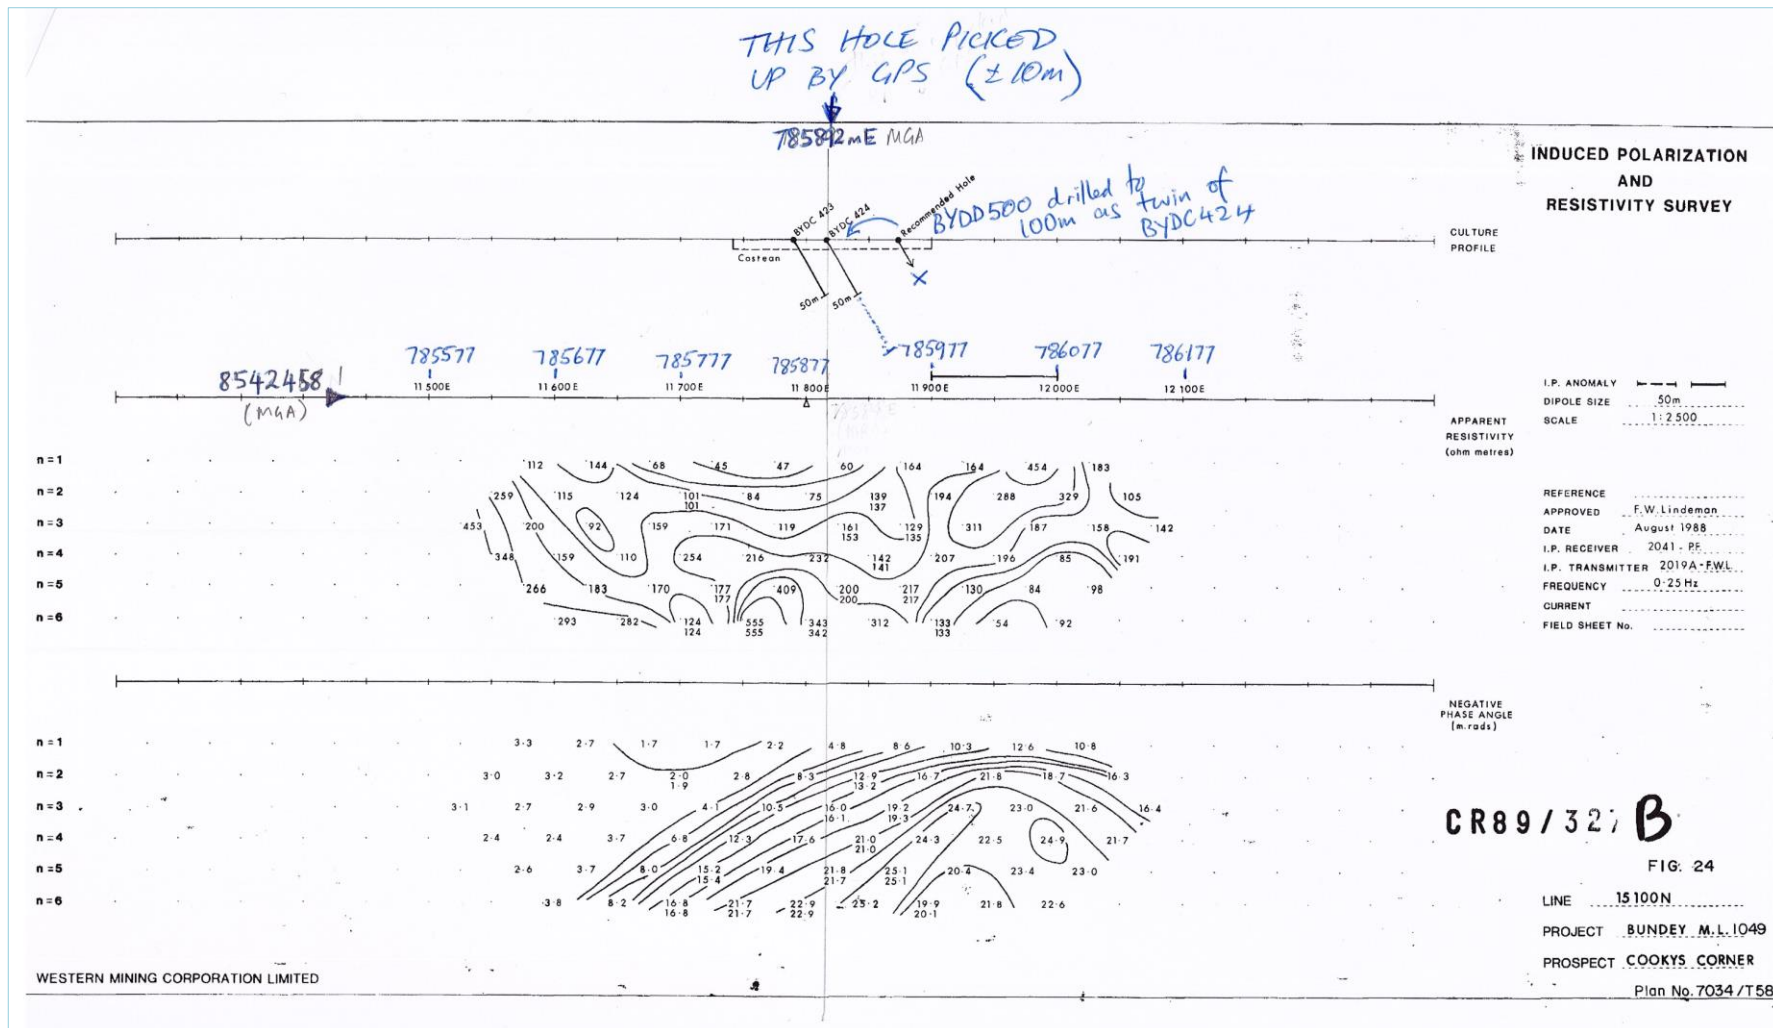 THIS HOLE PICKED
UP BY GPS (± 10m)
785892mE MGA
INDUCED POLARIZATION
AND
RESISTIVITY SURVEY
BYDC 423
BYDC 424
Recommended Hole
BYDD500 drilled to
100m as twin of
BYDC424
Costean
X
50m
50m
CULTURE
PROFILE
785577 785677 785777 785877 785977 786077 786177
8542458
(MGA)
11 500E 11 600E 11 700E 11 800E 11 900E 12 000E 12 100E
I.P. ANOMALY
DIPOLE SIZE 50m
SCALE 1:2500
APPARENT
RESISTIVITY
(ohm metres)
n=1 112 144 68 45 47 60 164 164 454 183
n=2 259 115 124 101 84 75 139 194 288 329 105
101 137
n=3 453 200 92 159 171 119 161 129 311 187 158 142
153 135
n=4 348 159 110 254 216 232 142 207 196 85 191
141
n=5 266 183 170 177 409 200 217 130 84 98
177 200 217
n=6 293 282 124 555 343 312 133 54 92
124 555 342 133
REFERENCE
APPROVED F.W. Lindeman
DATE August 1988
I.P. RECEIVER 2041 - PF
I.P. TRANSMITTER 2019A-F.W.L.
FREQUENCY 0·25 Hz
CURRENT
FIELD SHEET No.
NEGATIVE
PHASE ANGLE
(m.rads)
n=1 3·3 2·7 1·7 1·7 2·2 4·8 8·6 10·3 12·6 10·8
n=2 3·0 3·2 2·7 2·0 2·8 8·3 12·9 16·7 21·8 18·7 16·3
1·9 13·2
n=3 3·1 2·7 2·9 3·0 4·1 10·5 16·0 19·2 24·7 23·0 21·6 16·4
16·1 19·3
n=4 2·4 2·4 3·7 6·8 12·3 17·6 21·0 24·3 22·5 24·9 21·7
21·0
n=5 2·6 3·7 8·0 15·2 19·4 21·8 25·1 20·4 23·4 23·0
15·4 21·7 25·1
n=6 3·8 8·2 16·8 21·7 22·9 25·2 19·9 21·8 22·6
16·8 21·7 22·9 20·1
CR89/327 B
FIG. 24
LINE 15100N
PROJECT BUNDEY M.L.1049
PROSPECT COOKYS CORNER
Plan No. 7034/T58
WESTERN MINING CORPORATION LIMITED